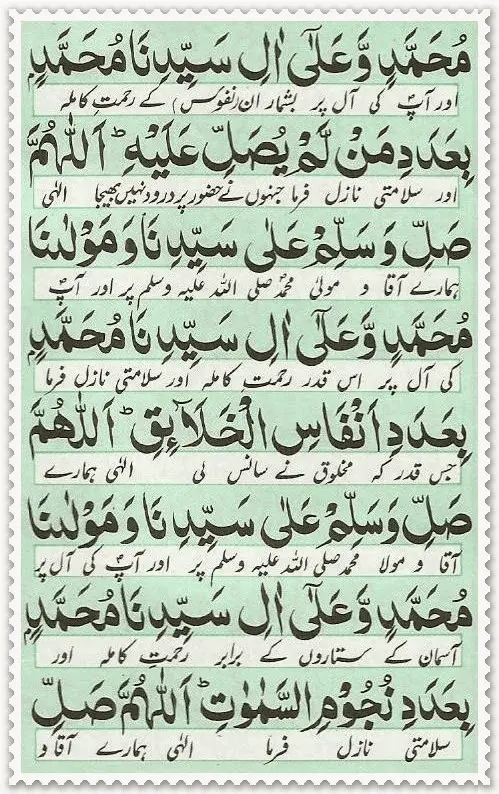 مُحَمَّدٍ وَّعَلٰٓی اٰلِ سَیِّدِنَا مُحَمَّدٍ
اور آپؐ کی آل پر بشمار ان (نفوس) کے رحمت کاملہ
بِعَدَدِ مَنْ لَّمْ یُصَلِّ عَلَیْہِ ؕ اَللّٰھُمَّ
اور سلامتی نازل فرما جنہوں نے حضور پر درود نہیں بھیجا الٰہی
صَلِّ وَسَلِّمْ عَلٰی سَیِّدِنَا وَمَوْلٰىنَا
ہمارے آقا و مولیٰ محمدؐ صلی اللہ علیہ وسلم پر اور آپؐ
مُحَمَّدٍ وَّعَلٰٓی اٰلِ سَیِّدِنَا مُحَمَّدٍ
کی آل پر اس قدر رحمت کاملہ اور سلامتی نازل فرما
بِعَدَدِ اَنْفَاسِ الْخَلَآئِقِ ؕ اَللّٰھُمَّ
جس قدر کہ مخلوق نے سانس لی الٰہی ہمارے
صَلِّ وَسَلِّمْ عَلٰی سَیِّدِنَا وَمَوْلٰىنَا
آقا و مولا محمد صلی اللہ علیہ وسلم پر اور آپؐ کی آل پر
مُحَمَّدٍ وَّعَلٰٓی اٰلِ سَیِّدِنَا مُحَمَّدٍ
آسمان کے ستاروں کے برابر رحمت کاملہ اور
بِعَدَدِ نُجُوْمِ السَّمٰوٰتِ ؕ اَللّٰھُمَّ صَلِّ
سلامتی نازل فرما الٰہی ہمارے آقا و